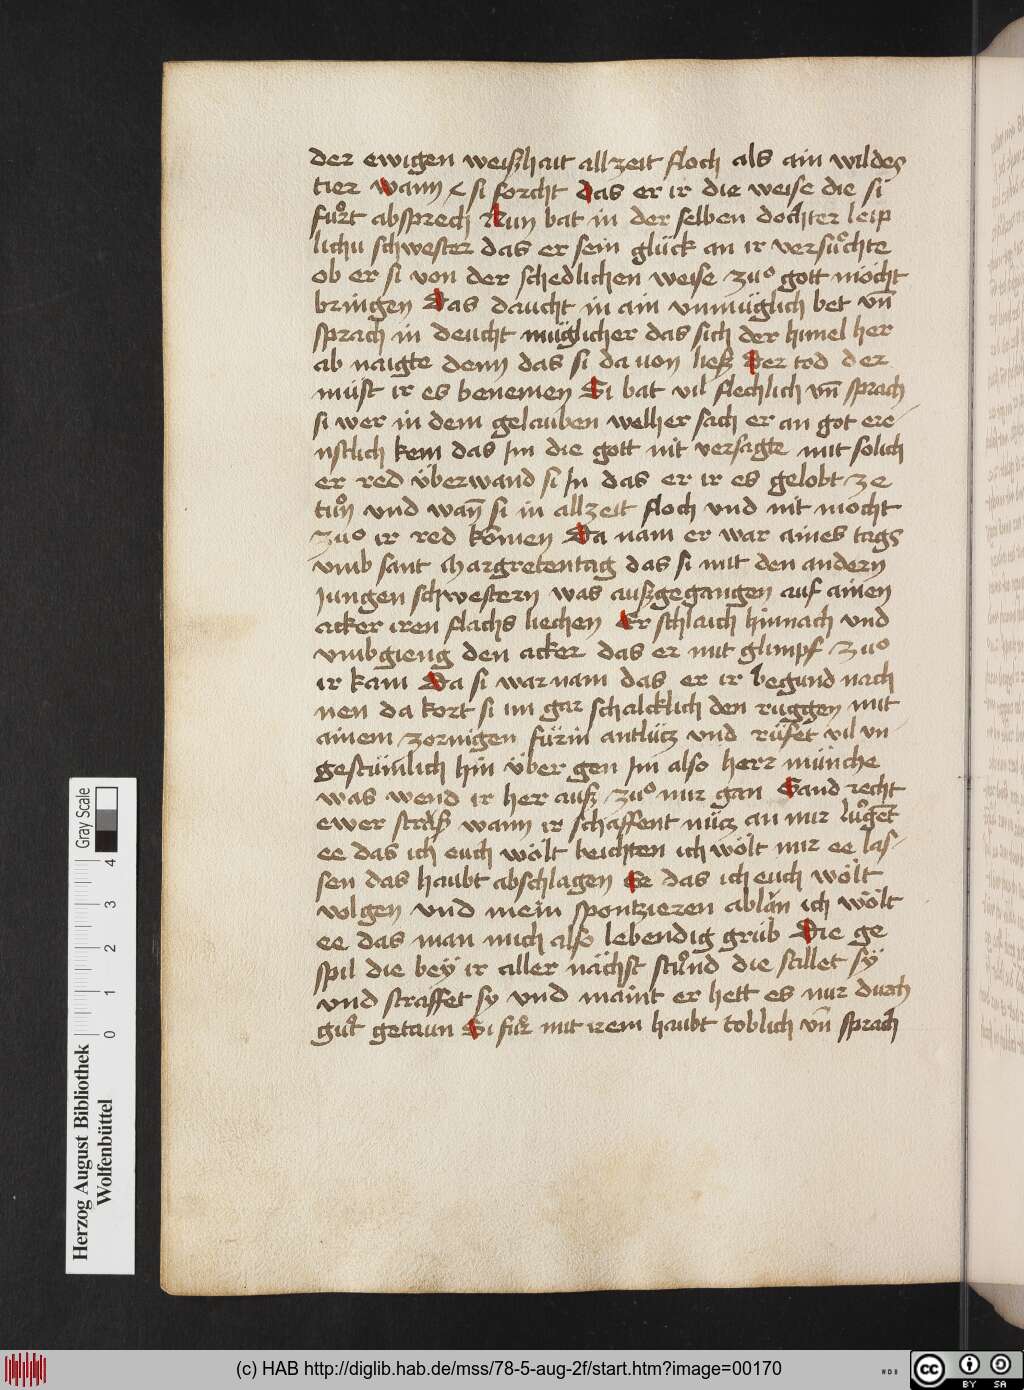 der ewigen weißhait allzeit floch als ain wildes
tier wann si forcht das er ir die weise die si
fuͦrt absprech Nun bat in der selben dochter leip
lichu schwester das er sein glück an ir versuͦchte
ob er si von der schedlichen weise zuͦ gott möcht
bringen Das daucht in ain vnmüglich bet vn̄
sprach in deucht müglicher das sich der himel her
ab naigte denn das si da uon ließ Der tod der
müst ir es benemen Si bat vil flechlich vn̄ sprach
si wer in dem gelauben welher sach er an got ere
nstlich kem das Im die gott nit versagte mit solich
er red überwand si In das er ir es gelobt ze
tuͦn und wan̄ si in allzeit floch vnd nit mocht
zuͦ ir red komen Da nam er war aines tags
vmb sant Margretentag das si mit den andern
Jungen schwestern was außgegangen auf ainen
acker iren flachs liechen Er schlaich hinnach vnd
vmbgieng den acker das er mit glimpf zuͦ
ir kam Da si war nam das er ir begund nach
nen da kort si im gar schalcklich den ruggen mit
ainem zornigen fürin antlütz vnd rüfet vil vn
gestümlich hin über gen Im also herr münche
was wend ir her auß zuͦ mir gan Gand recht
ewer straß wann ir schaffent nütz an mir luͦget
ee das ich euch wölt beichten ich wölt mir ee las
sen das haubt abschlagen Ee das ich euch wölt
volgen vnd mein spontzieren ablan ich wölt
ee das man mich also lebendig grüb Die ge
spil die bey ir aller nächst stuͦnd die stillet sÿ
vnd straffet sy vnd maint er hett es nur durch
guͦt getaun Si fuͦr mit irem haubt toblich vn̄ sprach
Herzog August Bibliothek
Wolfenbüttel
Gray Scale
0 1 2 3 4
(c) HAB http://diglib.hab.de/mss/78-5-aug-2f/start.htm?image=00170
WDB
cc BY SA